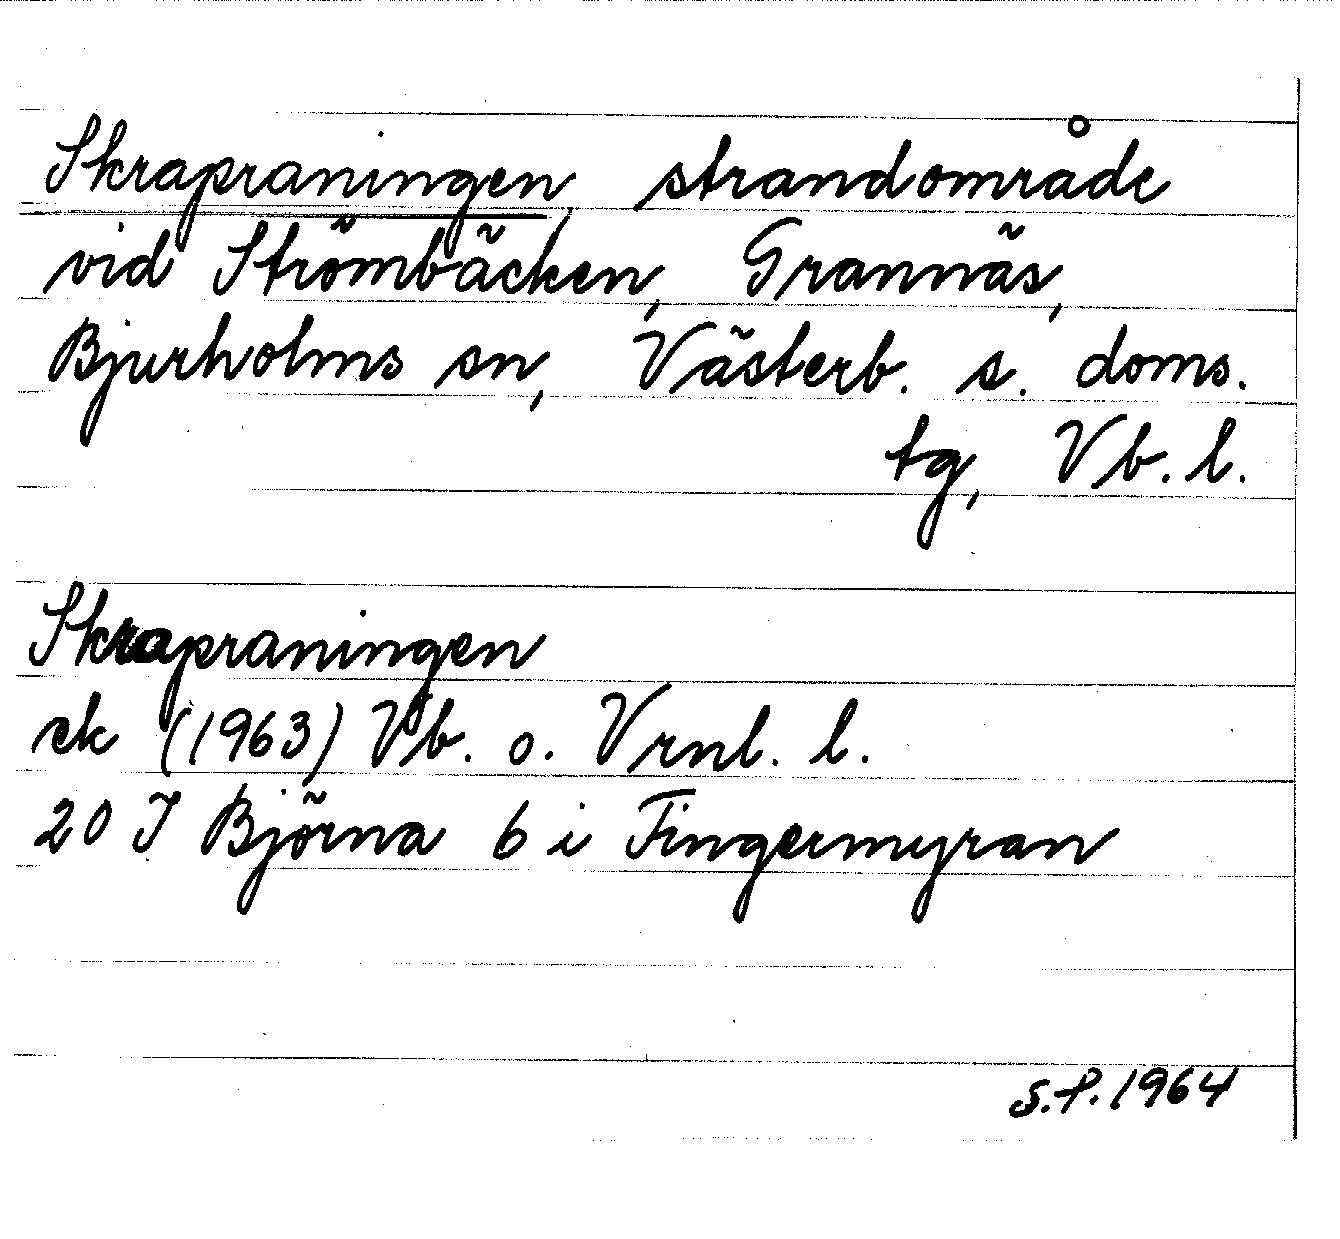 Skrapraningen, strandområde
vid Strömbäcken, Grannäs,
Bjurholms sn, Västerb. s. doms.
tg, Vb. l.
Skrapraningen
ek (1963) Vb. o. Vrnl. l.
20 J Björna 6 i Fingermyran
S.P. 1964